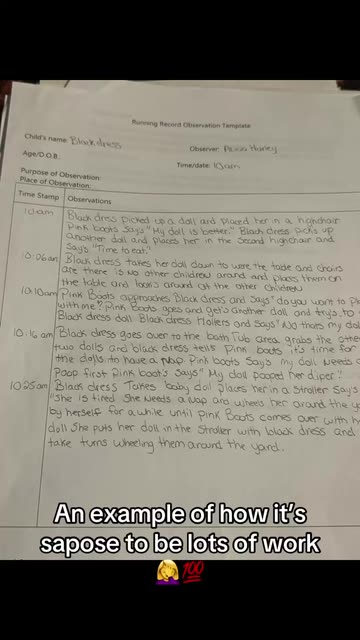 Running Record Observation Template
Child's name: Black dress
Observer: Alexia Hurley
Age/D.O.B.
Time/date: 10am
Purpose of Observation:
Place of Observation:
Time Stamp Observations
10am Black dress picked up a doll and placed her in a highchair
Pink boots says "My doll is better." Black dress picks up
another doll and places her in the second highchair and
says "Time to eat."
10:06am Black dress takes her doll down to were the table and chairs
are there is no other children around and places them on
the table and looks around at the other children
10:10am Pink Boots approaches Black dress and says "do you want to pl
with me? Pink Boots goes and gets another doll and trys to
Black dress doll Black dress Hollers and says "No thats my doll
10:16am Black dress goes over to the bath Tub area grabs the other
two dolls and black dress tells Pink boots it's time for
the dolls to have a Nap Pink boots says my doll Needs a
Poop first pink boot's says " My doll pooped her diper."
10:25am Black dress Takes baby doll places her in a stroller says
"She is tired She Needs a Nap and wheels her around the ya
by herself for a while until Pink Boots comes over with h
doll She puts her doll in the stroller with black dress and
take turns wheeling them around the yard..
An example of how it's
sapose to be lots of work
🤦‍♀️💯